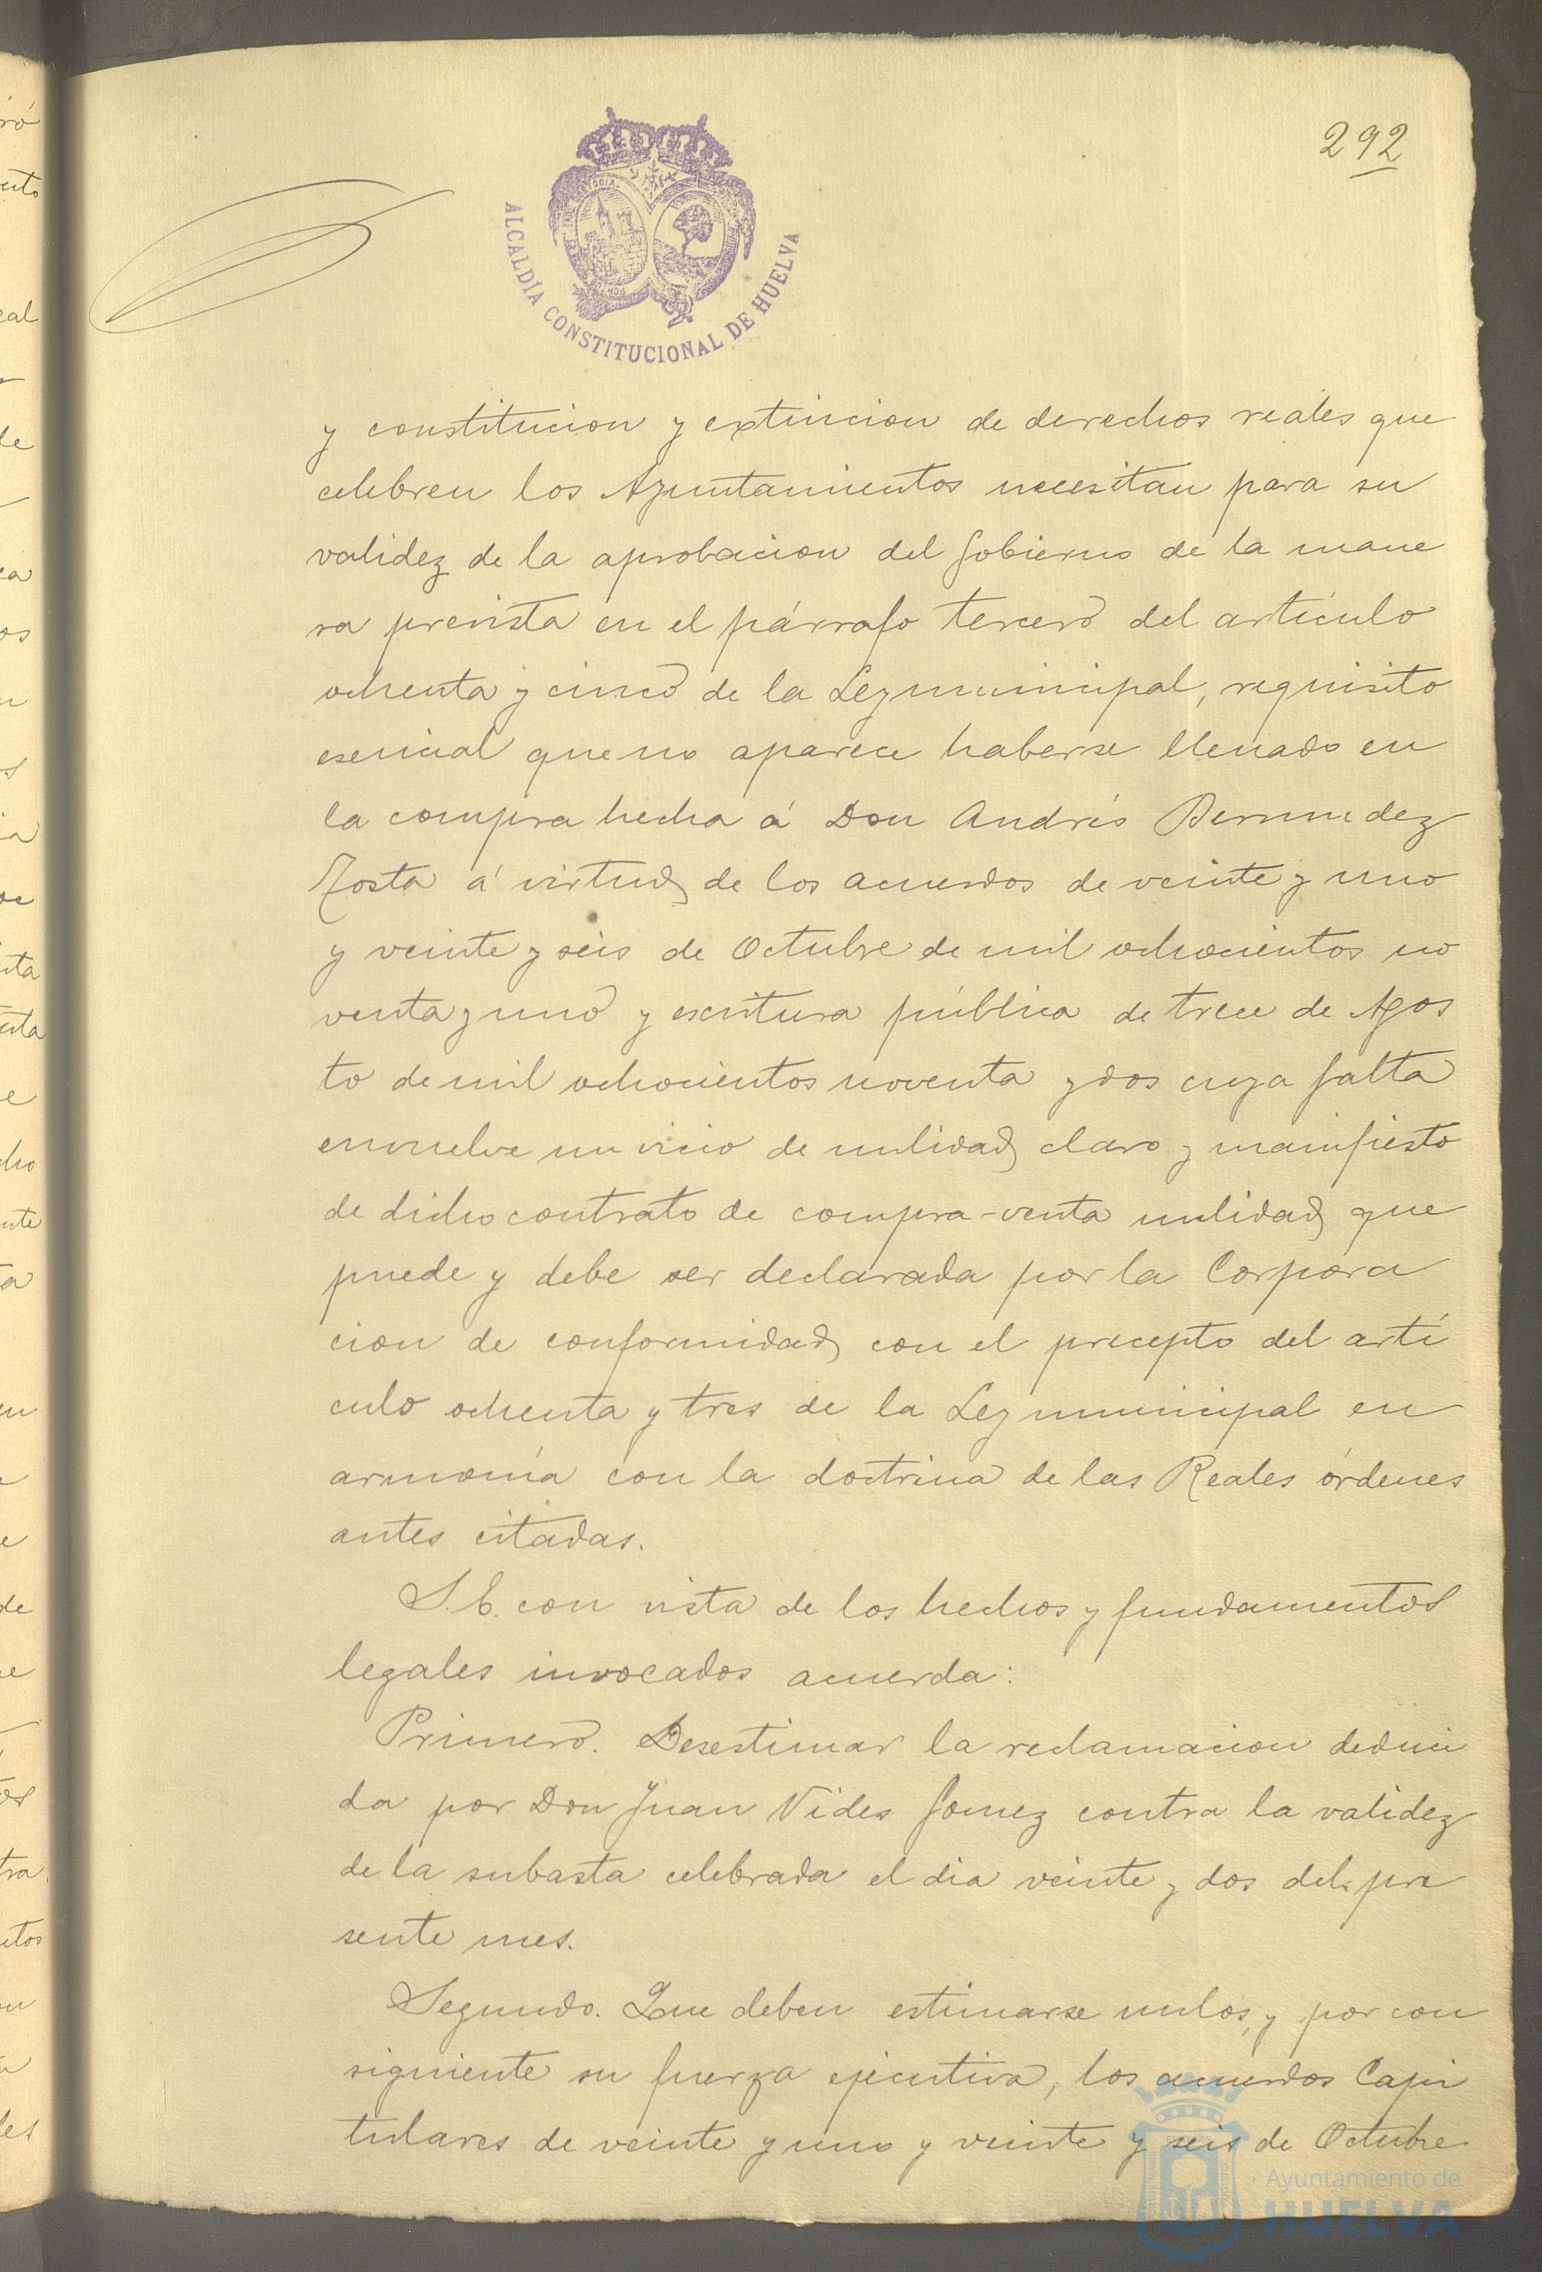 292
ALCALDÍA CONSTITUCIONAL DE HUELVA
y constitucion y extincion de derechos reales que
celebren los Ayuntamientos necesitan para su
validez de la aprobacion del Gobierno de la mane
ra prevista en el párrafo tercero del artículo
ochenta y cinco de la Ley municipal, requisito
esencial que no aparece haberse llenado en
la compra hecha á Don Andrés Bermudez
Tosta á virtud de los acuerdos de veinte y uno
y veinte y seis de Octubre de mil ochocientos no
venta y uno y escritura pública de trece de Agos
to de mil ochocientos noventa y dos cuya falta
envuelve un vicio de nulidad claro y manifiesto
de dicho contrato de compra-venta nulidad que
puede y debe ser declarada por la Corpora
cion de conformidad con el precepto del artí
culo ochenta y tres de la Ley municipal en
armonía con la doctrina de las Reales órdenes
antes citadas.
S.E. con vista de los hechos y fundamentos
legales invocados acuerda:
Primero. Desestimar la reclamacion deduci
da por Don Juan Vides Gomez contra la validez
de la subasta celebrada el dia veinte y dos del pre
sente mes.
Segundo. Que deben estimarse nulos, y por con
siguiente su fuerza ejecutiva, los acuerdos Capi
tulares de veinte y uno y veinte y seis de Octubre
Ayuntamiento de
HUELVA